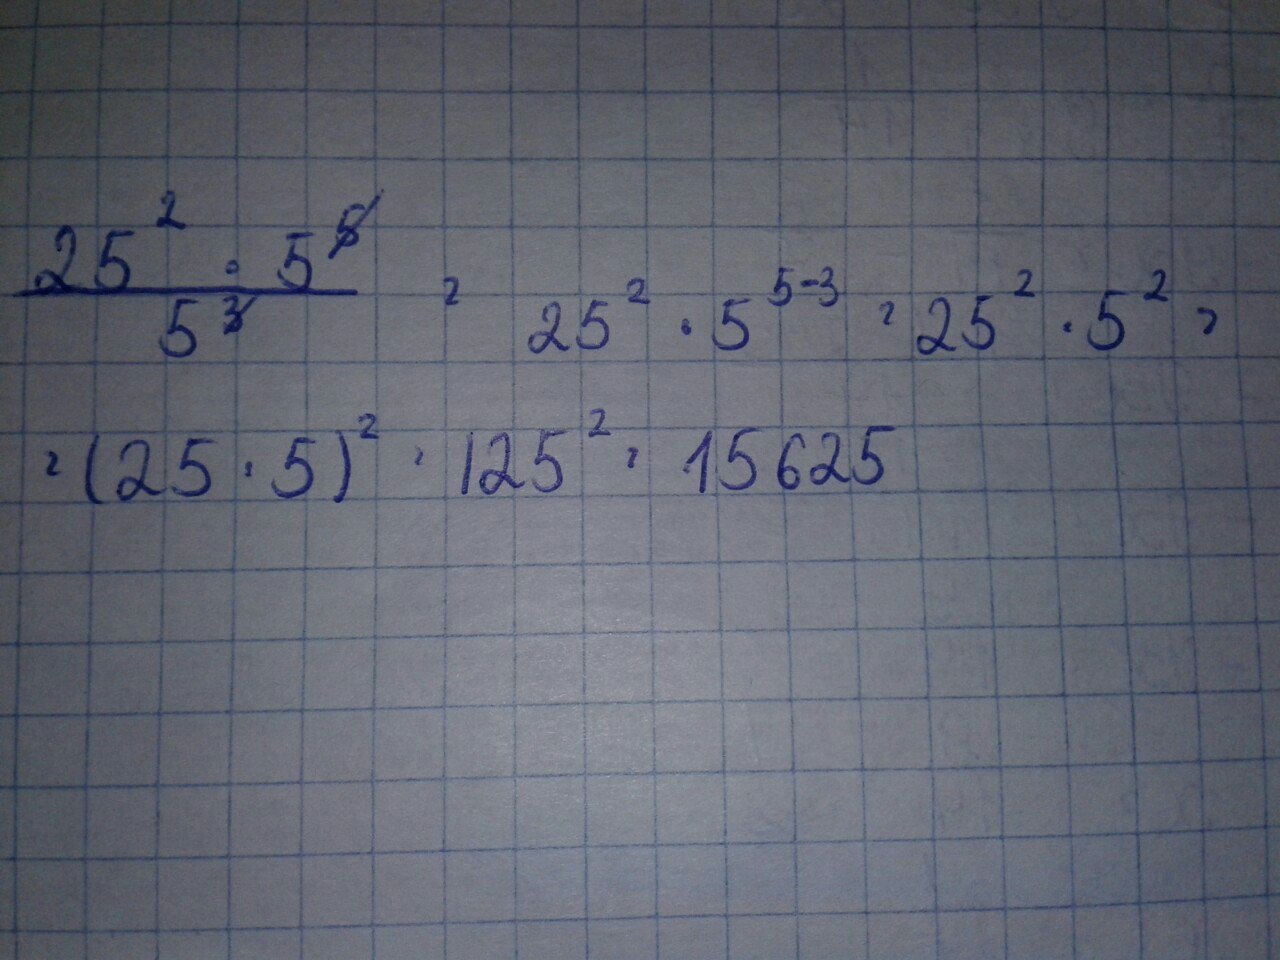 25² · 5⁵ / 5³ = 25² · 5⁵⁻³ = 25² · 5² =
= (25 · 5)² = 125² = 15625